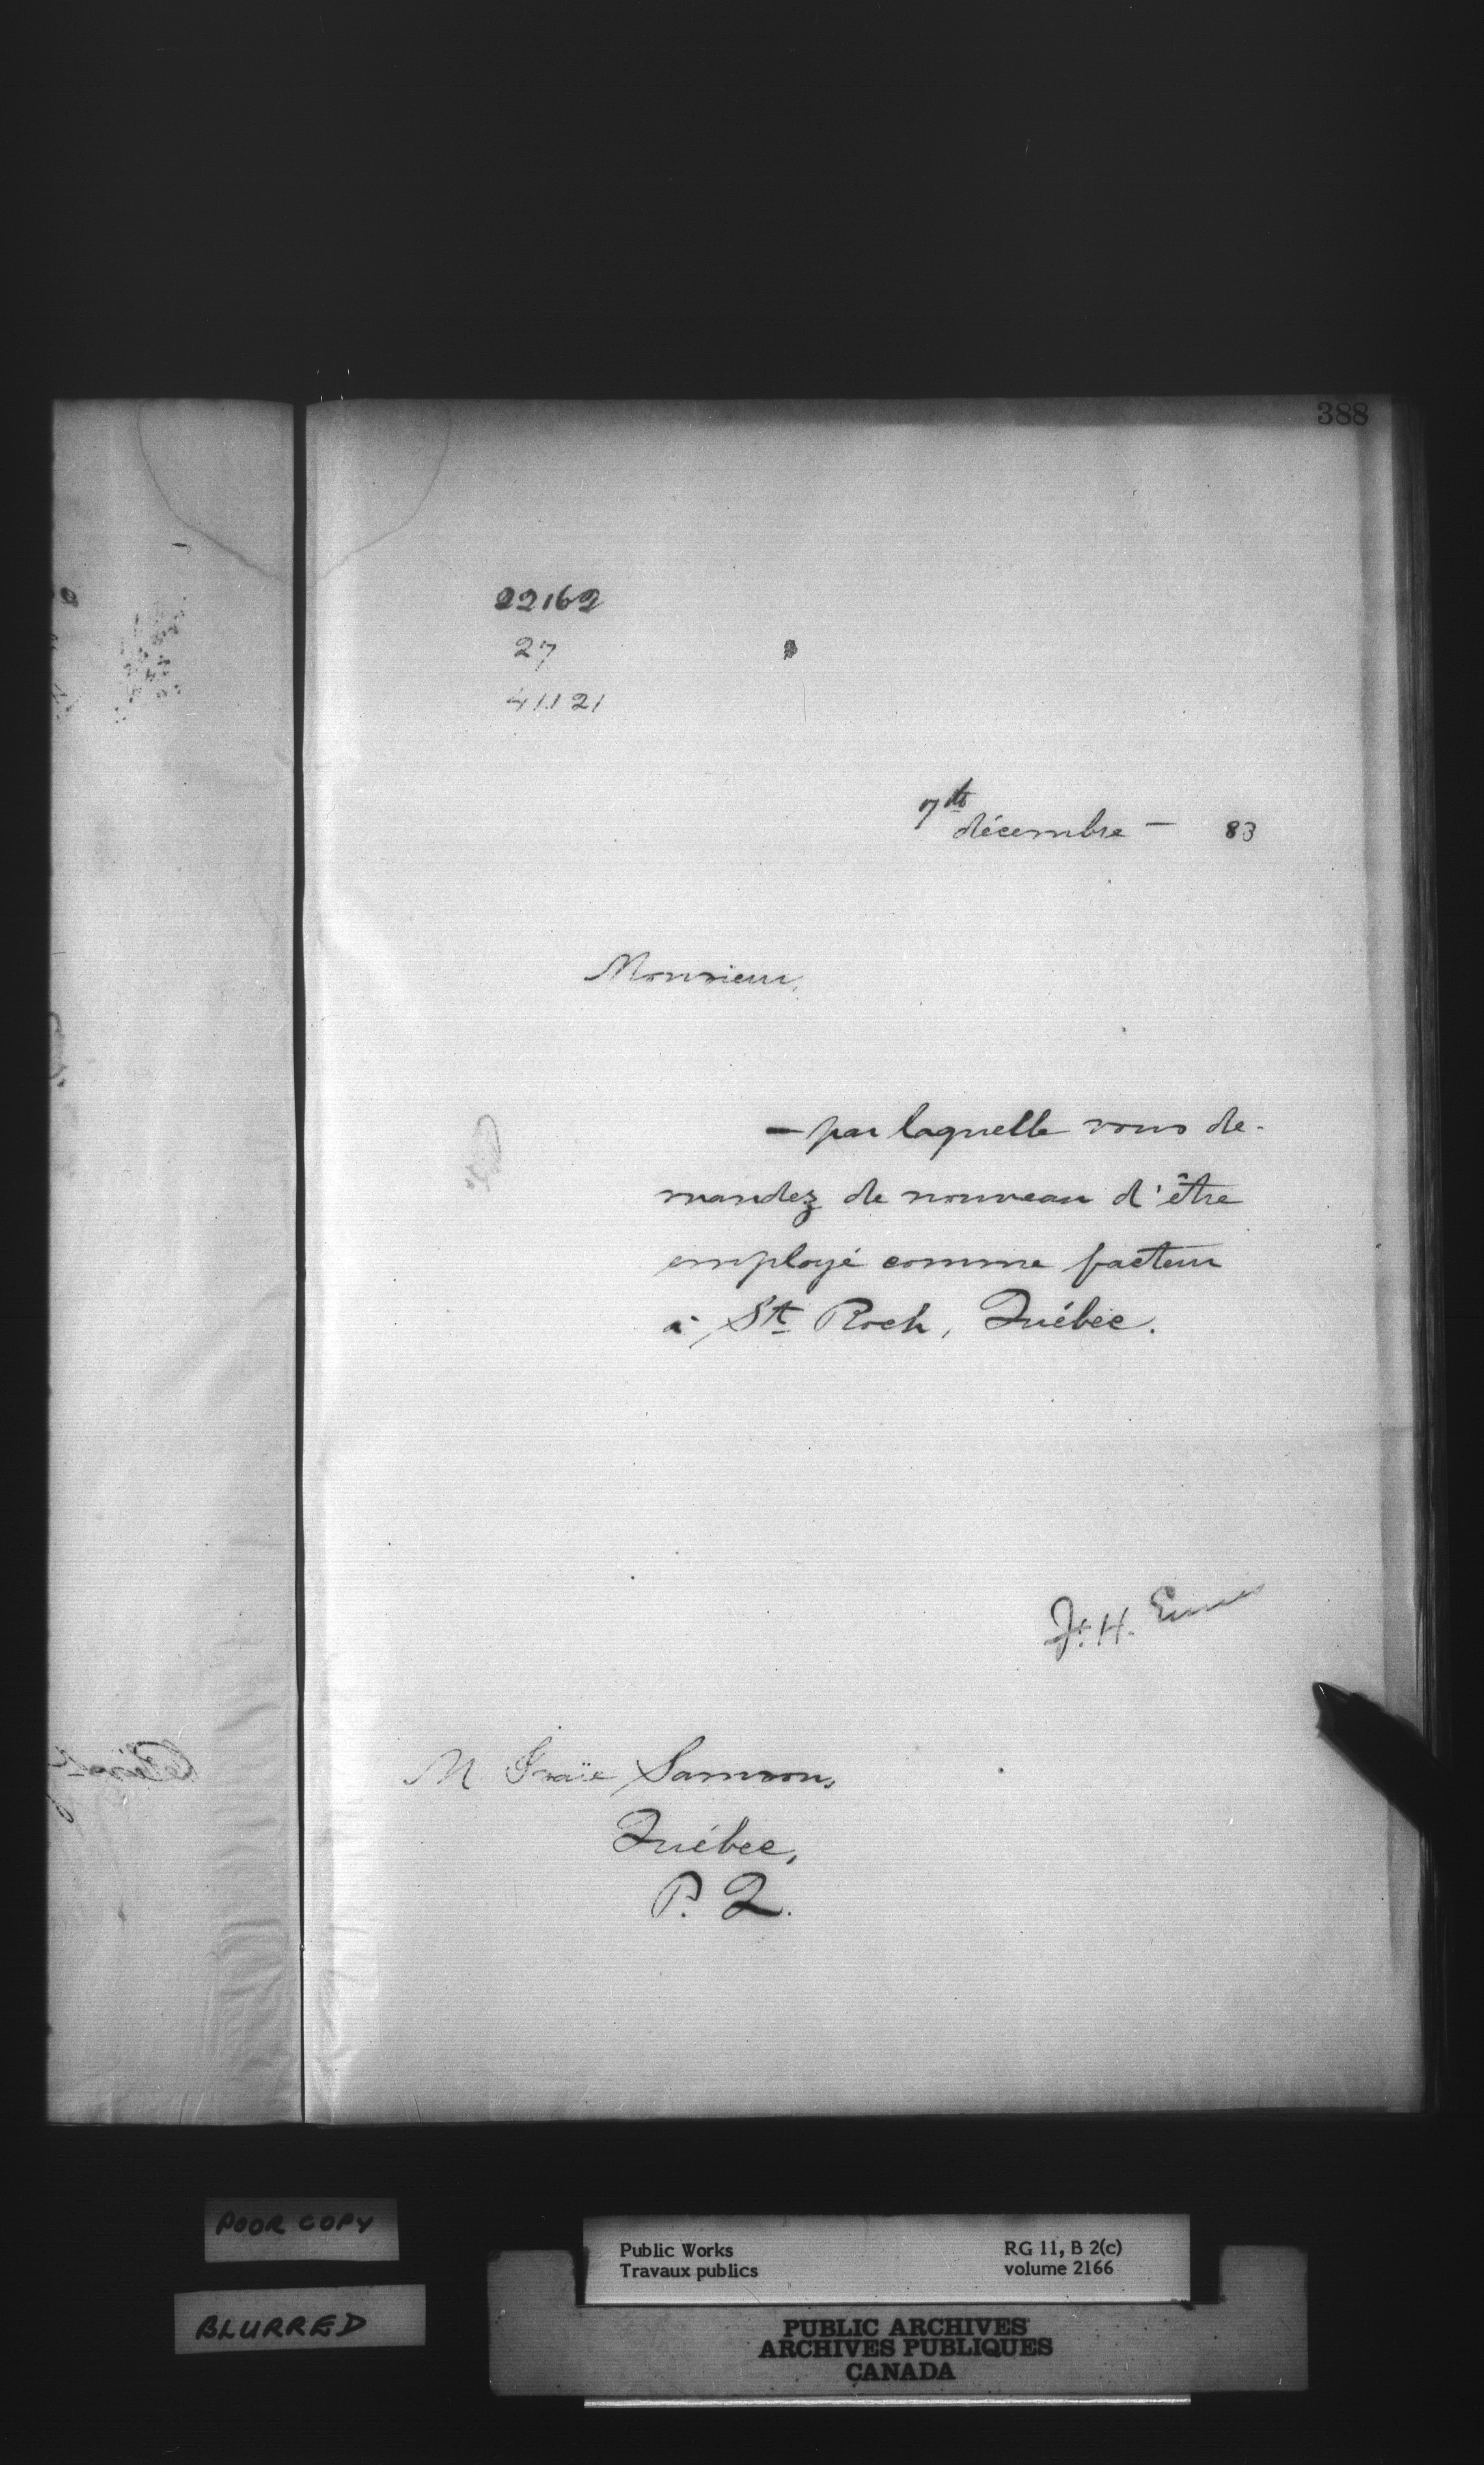 388
22162
27
41121
7th décembre — 83
Monsieur,
— par laquelle vous de-
mandez de nouveau d'être
employé comme facteur
à St Roch, Québec.
F. H. Ennis
M Isaïe Samson,
Québec,
P. Q.
POOR COPY
BLURRED
Public Works
Travaux publics
RG 11, B 2(c)
volume 2166
PUBLIC ARCHIVES
ARCHIVES PUBLIQUES
CANADA